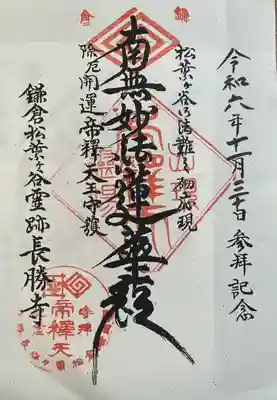 鎌倉
令和六年十一月三十日 参拝記念
松葉ヶ谷御法難之初示現
南無妙法蓮華経
除厄開運帝釋天王守護
鎌倉松葉ヶ谷霊跡長勝寺
帝釋天